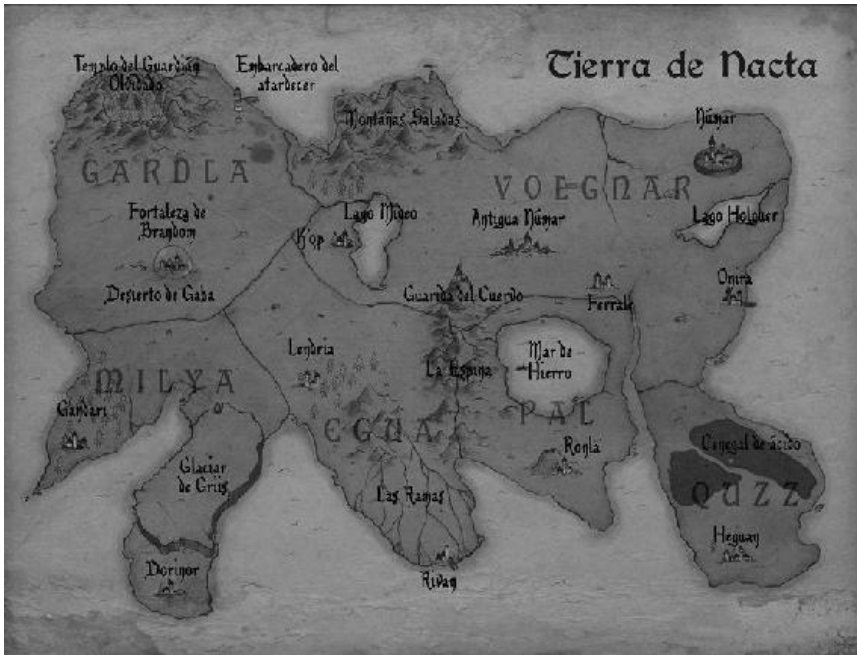 Tierra de Nacta
Templo del Guardián
Olvidado
Embarcadero del
atardecer
Montañas Saladas
Númar
GARDLA
VOEGNAR
Fortaleza de
Brandom
K'op
Lago Mideo
Antigua Númar
Lago Holguer
Desierto de Gaba
Guarida del Cuervo
Ferrale
Onira
Lendria
La Espina
Mar de
Hierro
MILYA
Gandari
EGUA
PAL
Ronla
Cenegal de ácido
Glaciar
de Grüs
Las Ramas
QUZZ
Heguan
Dorinor
Rivan